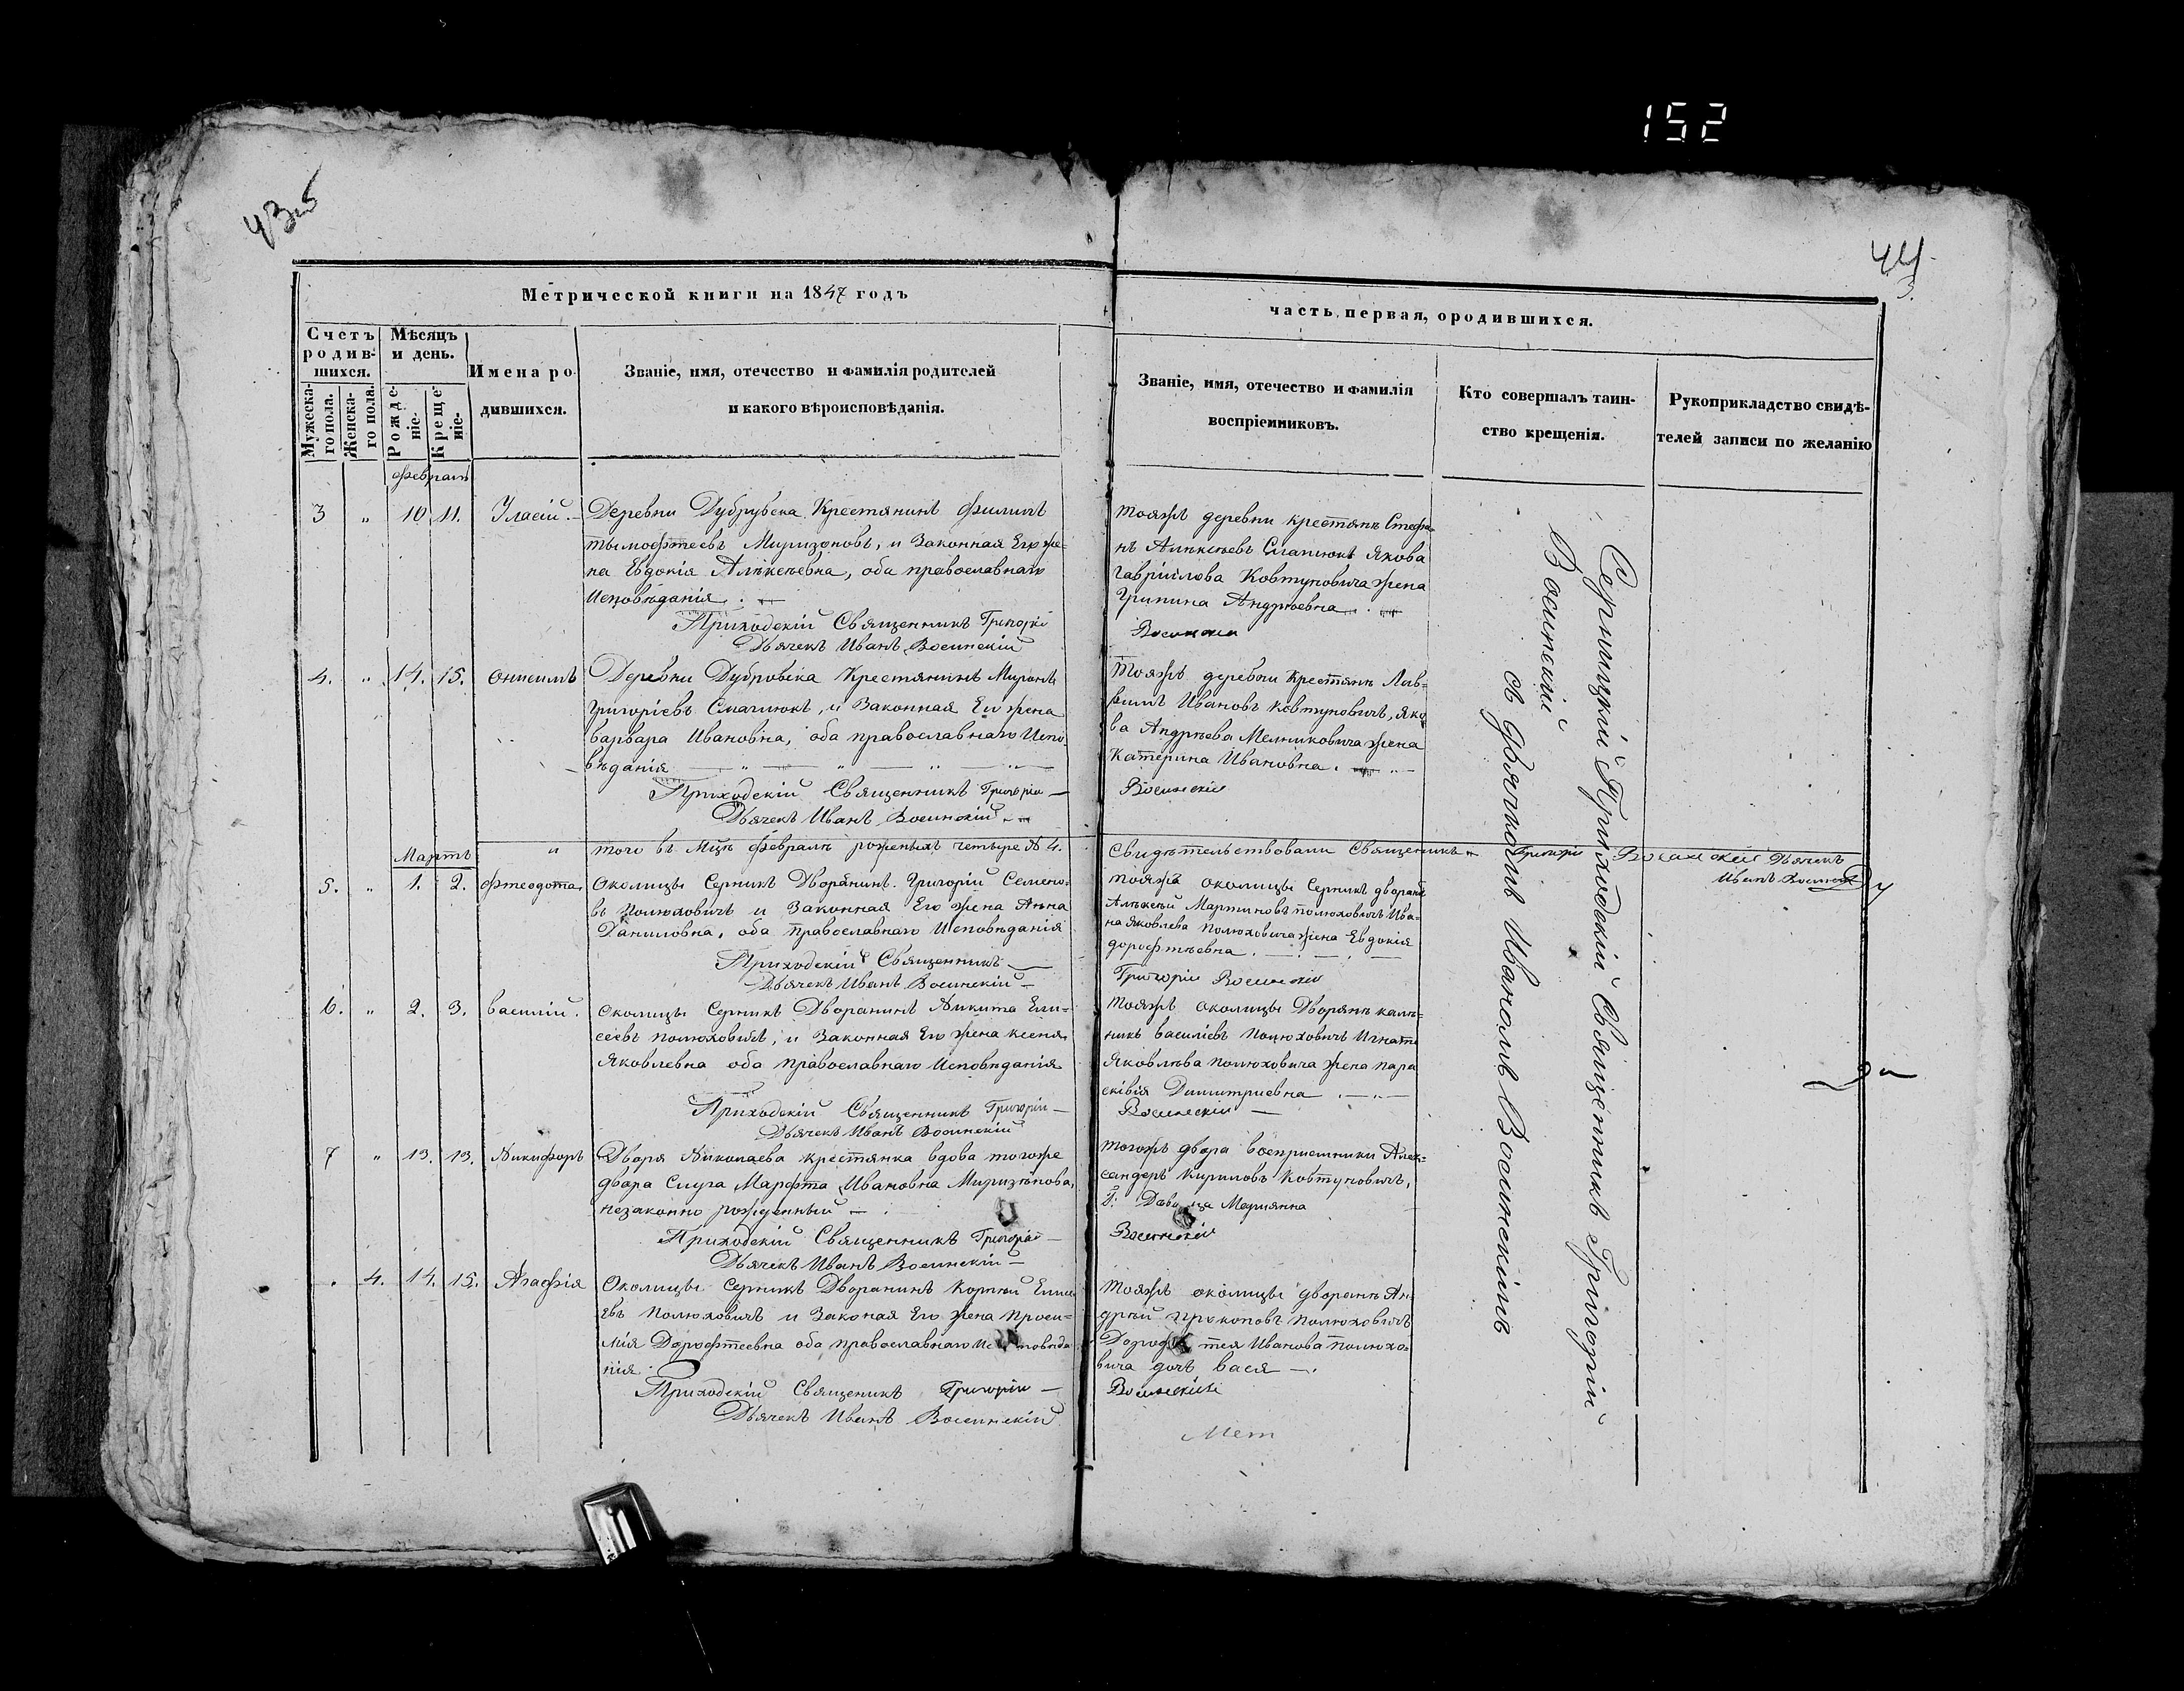 152
43об
44
3.
Метрической книги на 1847 годъ
часть первая, ородившихся.
Счетъ родив-шихся.
Мужеска-го пола.
Женска-го пола.
Мѣсяцъ и день.
Рожде-ніе.
Креще-ніе.
Имена ро-дившихся.
Званіе, имя, отечество и фамилія родителей
и какого вѣроисповѣданія.
Званіе, имя, отечество и фамилія
воспріемниковъ.
Кто совершалъ таин-
ство крещенія.
Рукоприкладство свидѣ-
телей записи по желанію
февраль
3 „ 10. 11. Уласій. Деревни Дубрувска Крестянинъ Филипъ
тымофтеевъ Миризоновъ, и Законная Его же-
на Евдокія Алѣксѣевна, оба православнаго
Исповѣданія.
Приходскій Священникъ Григорій
Дьячекъ Иванъ Восинскій
тояжъ деревни крестянъ Стефа-
нъ Алѣксѣевъ Смаглюкъ Якова
Гавріилова Ковтуновича жена
Грипина Андрѣевна
Восинскій
4. „ 14. 15. Онисимъ Деревни Дубровска Крестянинъ Миронъ
Григоріевъ Смаглюкъ, и Законная Его жена
варвара Ивановна, оба православнаго Испо-
вѣданія
Приходскій Священникъ Григорій
Дьячекъ Иванъ Восинскій
Тояжъ деревни Крестянъ
Ивановъ Ковтуновичъ, Яко
ва Андрѣева Мелниковича жена
Катерина Ивановна.
Восинскій
того въ Мцѣ февралѣ роженыхъ четыре № 4.
Свидѣтельствовали Священникъ Григорій Восинскій Дьячекъ
Иванъ Восинскій
Мартъ
5. „ 1. 2. Фтеодота Околицы Серникъ Дворянинъ Григорій Семено-
въ Полюховичъ и Законная Его жена Анна
Даниловна, оба православнаго Исповѣданія
Приходскій Священникъ
Дьячекъ Иванъ Восинскій
тояжъ околицы Серникъ дворянъ
Алѣксѣй Мартиновъ полюховичъ Ива-
на Яковлева полюховича жена Евдокія
дорофтѣевна.
Григорій Восинскій
6. „ 2. 3. Василій. Околицы Серникъ Дворанинъ Никита Ели-
сеевъ полюховичъ, и Законная Его жена ксенія
Яковлевна оба православнаго Исповѣданія
Приходскій Священникъ Григорій
Дьячекъ Иванъ Восинскій
Тояжъ околицы Дворянъ калѣ-
никъ Василіевъ Полюховичъ Игнатія
Яковлѣва полюховича жена пара
сківія Димитриевна
Восинскій
7 „ 13. 13. Никифоръ Двора Николаева крестянка вдова тогоже
двора Слуга Марфта Ивановна Миризонова,
незаконно рожденный
Приходскій Священникъ Григорій
Дьячекъ Иванъ Восинскій
Тогожъ двора воспріемники Алек-
сандеръ Кириловъ Ковтуновичъ,
Марианна
Восинскій
. 4. 14. 15. Агафія Околицы Серникъ Дворанинъ Корнѣй Елисе
евъ Полюховичъ и Законая Его жена Проси-
мія Дорофтеевна оба православнаго Исповѣда
нія
Приходскій Священикъ Григорій
Дьячекъ Иванъ Восинскій
Тояжъ околицы дворанъ Ан-
дрѣй Прокоповъ полюховичъ
Дорофтея Иванова полюхо-
вича дочъ Вася
Восинскій
Серницкій Приходскій Священникъ Григорій
Восинскій
съ Дьячкомъ Иваномъ Восинскимъ
Мет